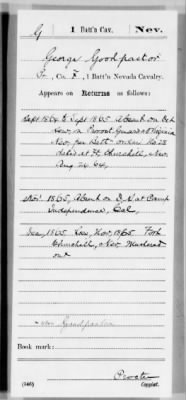 G | 1 Batt'n Cav. | Nev.
George Goodpastor
Co. F, 1 Batt'n Nevada Cavalry.
Appears on Returns as follows:
Sept 1864 to Sept 1865 Absent on Det
Serv, in Provost Guard at Virginia
Nev, per Batt order No 28
dated at Ft Churchill, Nev
Aug 24 64,
Nov. 1865, Absent on D.S. at Camp
Independence, Cal,
1865 Nov, 1865 Fort
Churchill, Nev Mustered
out
Book mark:
(546)
Copyist.